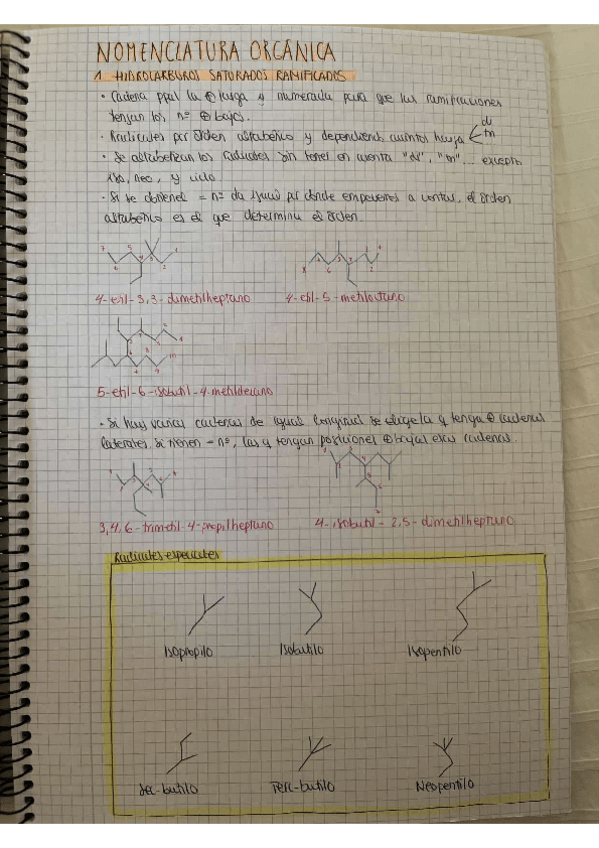 NOMENCLATURA ORGÁNICA
1. HIDROCARBUROS SATURADOS RAMIFICADOS
· Cadena ppal la ⊕ larga y numerada para que las ramificaciones
tengan los nº ⊕ bajos.
· Radicales por orden alfabético y dependiendo cuántos haya di
tri
· Se alfabetizan los radicales sin tener en cuenta "di", "tri"... excepto
iso, neo, y ciclo
· Si se obtiene = nº da igual por donde empecemos a contar, el orden
alfabético es el que determina el orden.
4-etil-3,3-dimetilheptano 4-etil-5-metiloctano
5-etil-6-isobutil-4-metildecano
· Si hay varias cadenas de igual longitud se elige la q tenga ⊕ cadenas
laterales. Si tienen = nº, las q tengan posiciones ⊕ bajas esas cadenas.
3,4,6-trimetil-4-propilheptano 4-isobutil-2,5-dimetilheptano
Radicales especiales
Isopropilo Isobutilo Isopentilo
Sec-butilo Terc-butilo Neopentilo